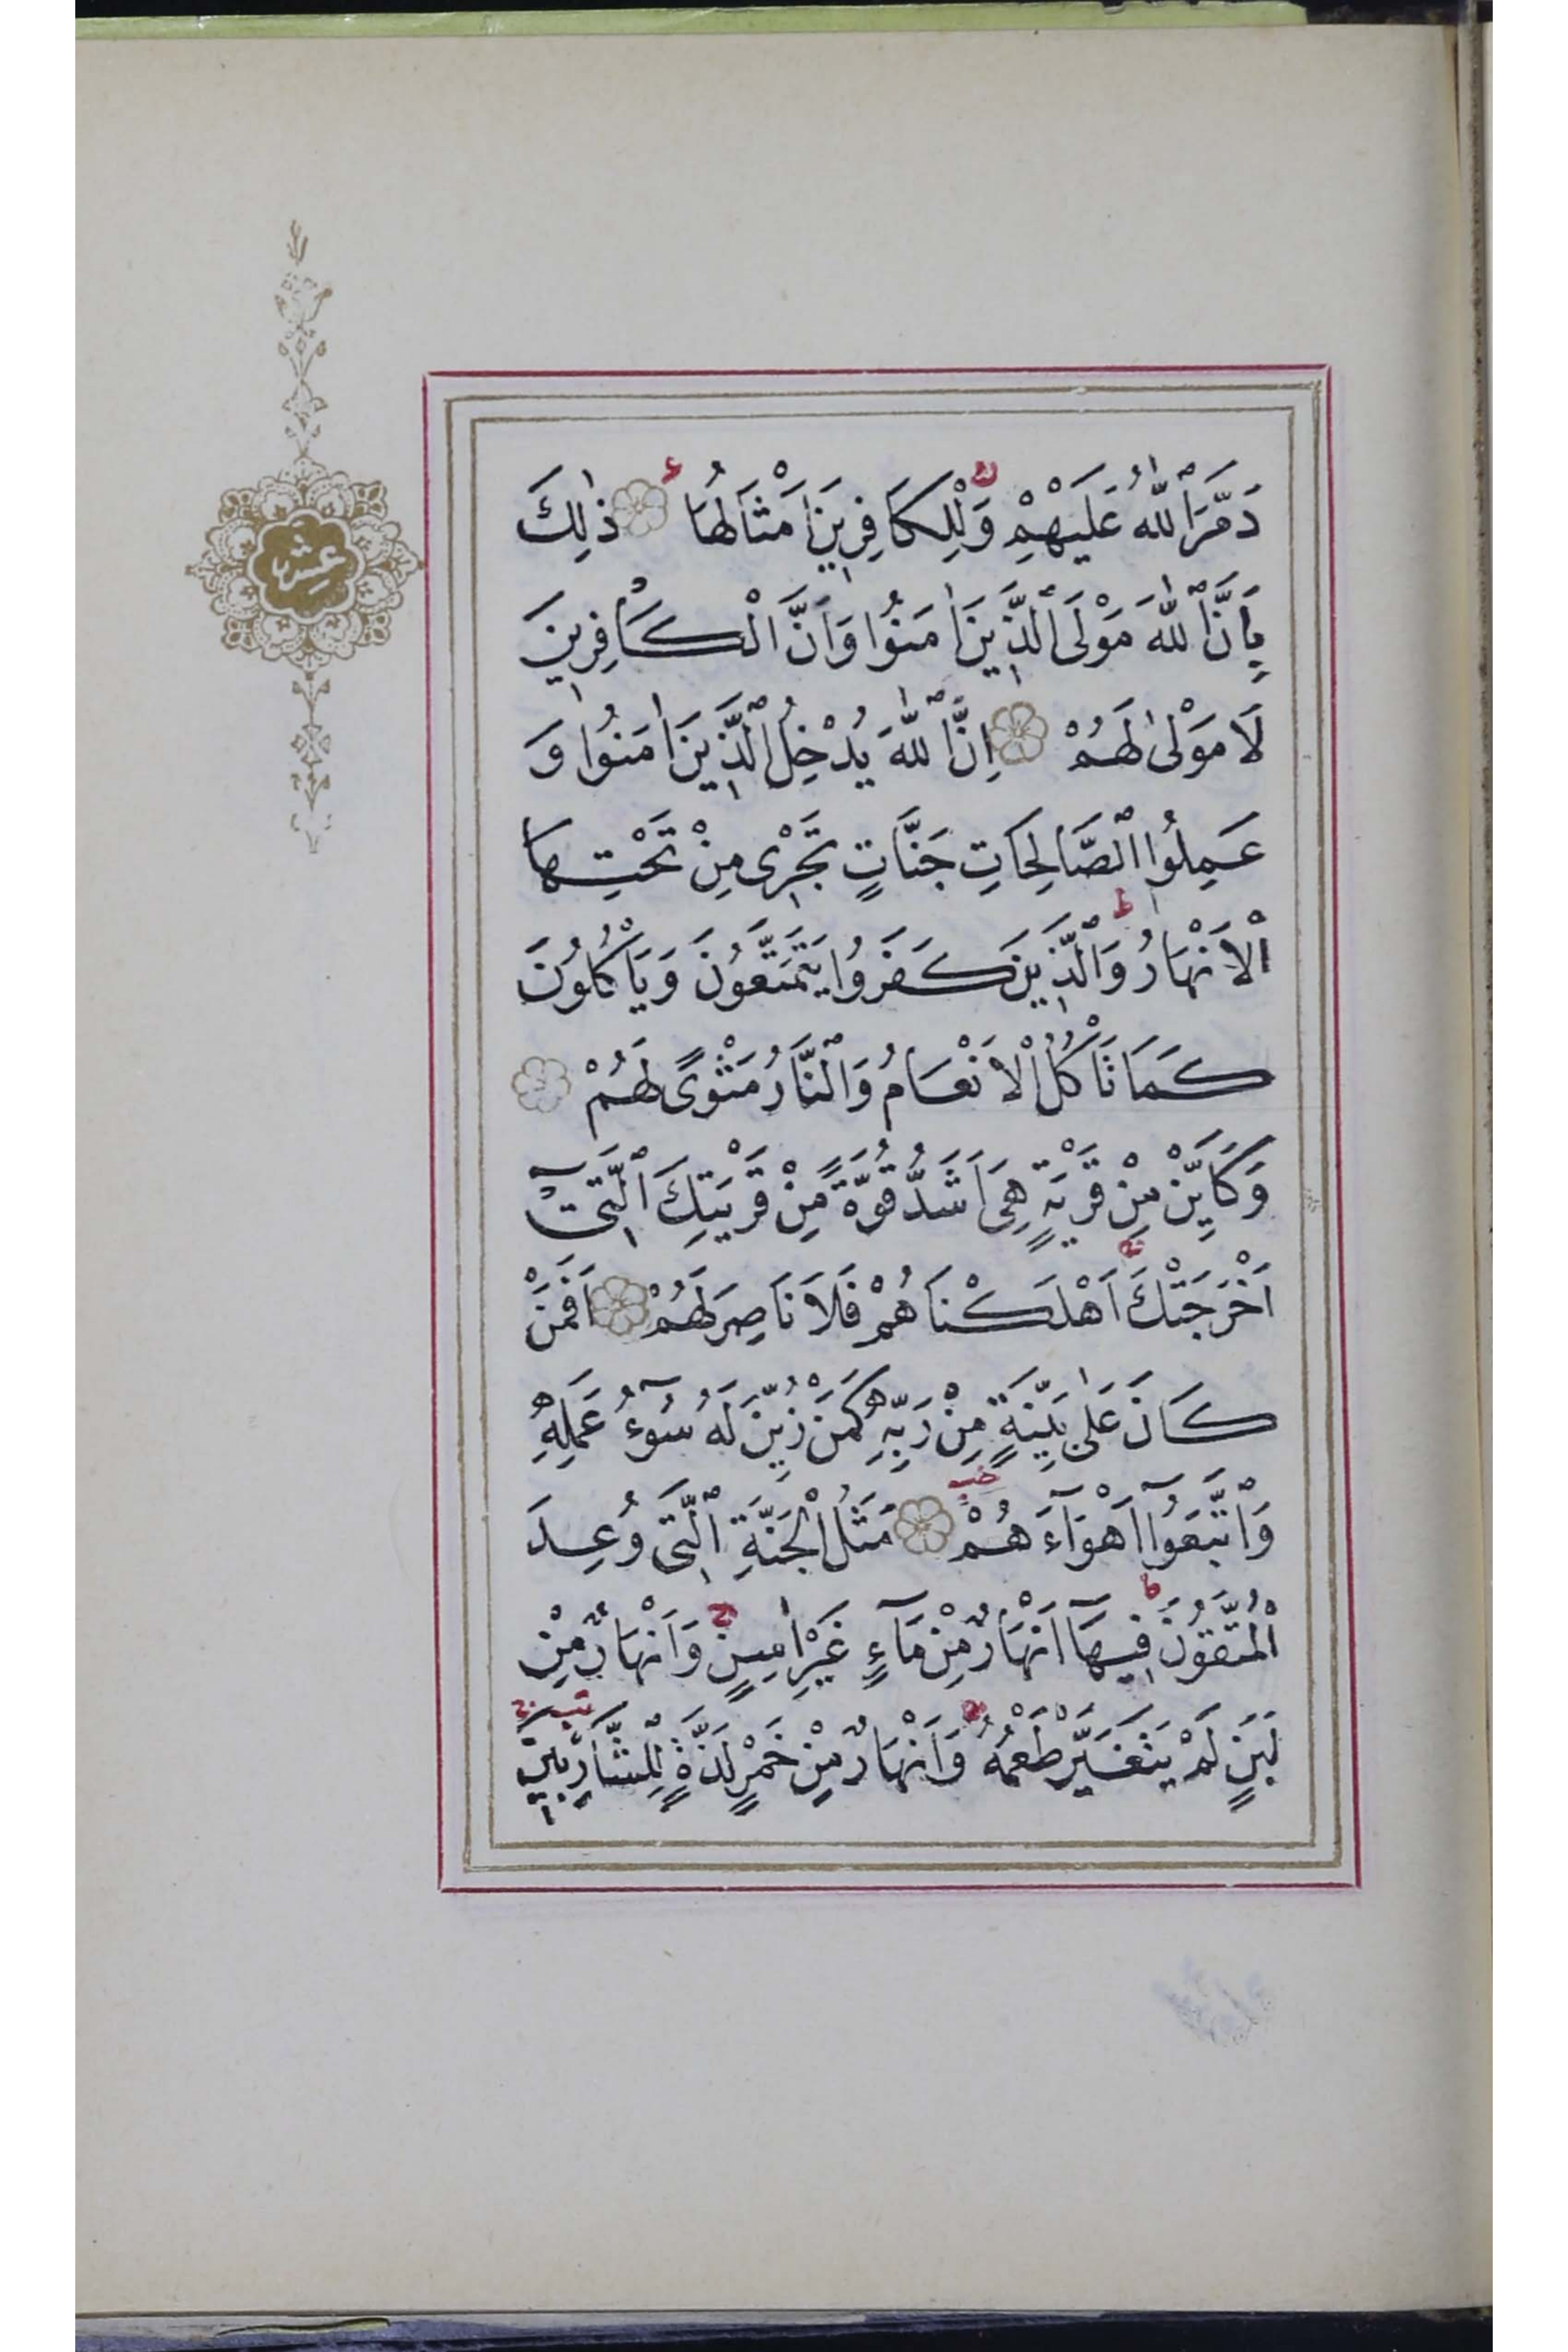 عشر
دَمَّرَ ٱللّٰهُ عَلَيْهِمْ وَلِلْكَافِرِينَ اَمْثَالُهَا ذٰلِكَ
بِاَنَّ ٱللّٰهَ مَوْلَى ٱلَّذِينَ اٰمَنُوا وَاَنَّ الْكَافِرِينَ
لَا مَوْلٰى لَهُمْ اِنَّ ٱللّٰهَ يُدْخِلُ ٱلَّذِينَ اٰمَنُوا وَ
عَمِلُوا ٱلصَّالِحَاتِ جَنَّاتٍ تَجْرِى مِنْ تَحْتِهَا
الْاَنْهَارُ وَٱلَّذِينَ كَفَرُوا يَتَمَتَّعُونَ وَيَاْكُلُونَ
كَمَا تَاْكُلُ الْاَنْعَامُ وَٱلنَّارُ مَثْوًى لَهُمْ
وَكَاَيِّنْ مِنْ قَرْيَةٍ هِىَ اَشَدُّ قُوَّةً مِنْ قَرْيَتِكَ ٱلَّتِىٓ
اَخْرَجَتْكَ اَهْلَكْنَاهُمْ فَلَا نَاصِرَ لَهُمْ اَفَمَنْ
كَانَ عَلٰى بَيِّنَةٍ مِنْ رَبِّهِ كَمَنْ زُيِّنَ لَهُ سُوٓءُ عَمَلِهِ
وَٱتَّبَعُوٓا اَهْوَآءَهُمْ مَثَلُ الْجَنَّةِ ٱلَّتِى وُعِدَ
الْمُتَّقُونَ فِيهَآ اَنْهَارٌ مِنْ مَآءٍ غَيْرِ اٰسِنٍ وَاَنْهَارٌ مِنْ
لَبَنٍ لَمْ يَتَغَيَّرْ طَعْمُهُ وَاَنْهَارٌ مِنْ خَمْرٍ لَذَّةٍ لِلشَّارِبِينَ